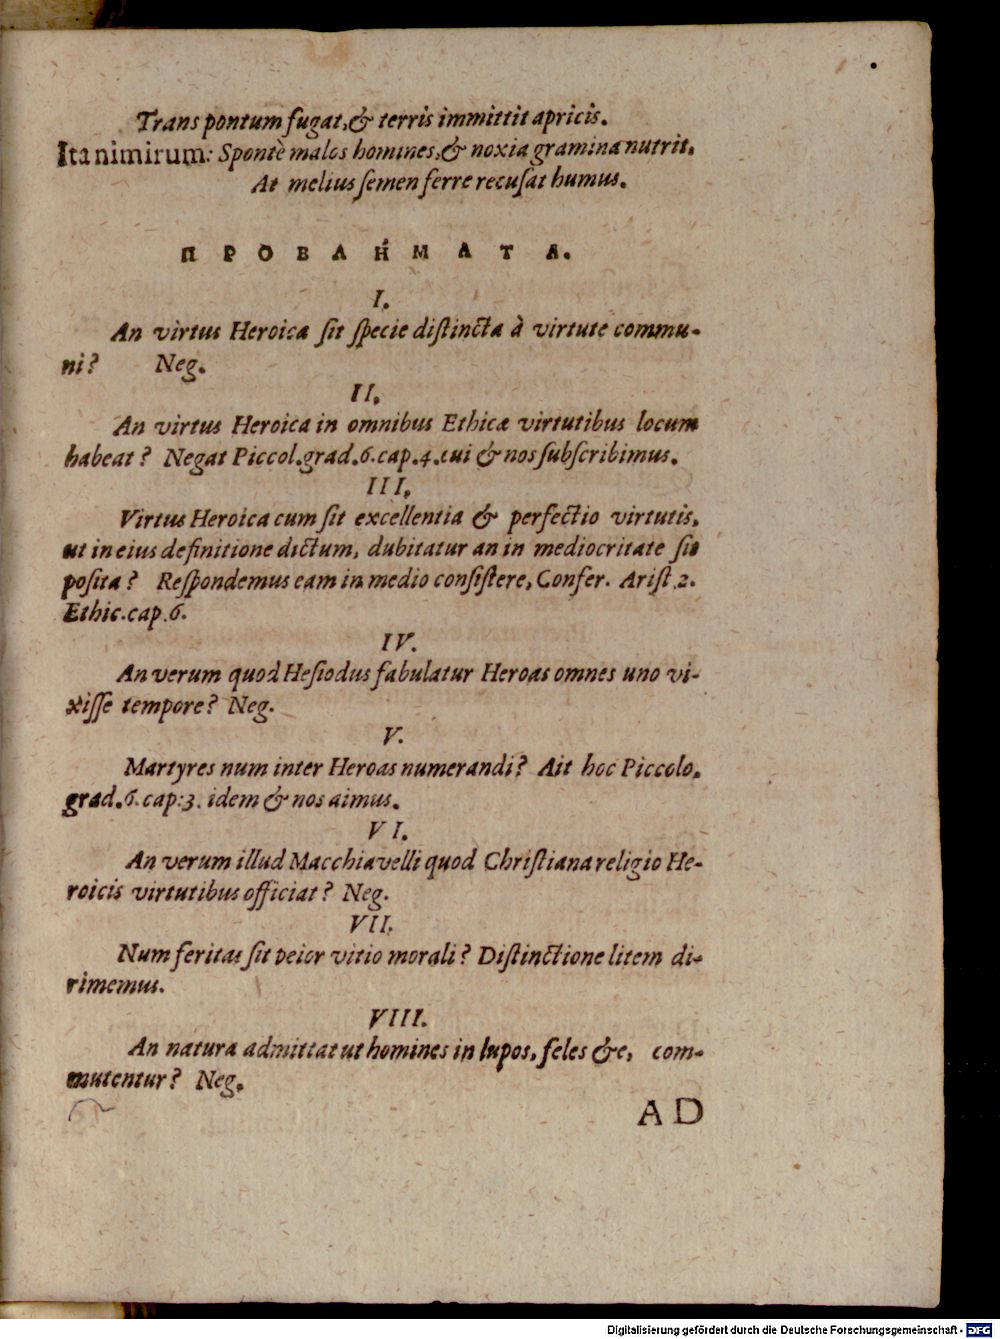 Trans pontum fugat, & terris immittit apricis.
Ita nimirum: Spontè malos homines, & noxia gramina nutrit.
At melius semen ferre recusat humus.
ΠΡΟΒΛΉΜΑΤΑ.
I.
An virtus Heroica sit specie distincta à virtute commu-
ni? Neg.
II.
An virtus Heroica in omnibus Ethicæ virtutibus locum
habeat? Negat Piccol. grad. 6. cap. 4. cui & nos subscribimus.
III.
Virtus Heroica cum sit excellentia & perfectio virtutis,
ut in eius definitione dictum, dubitatur an in mediocritate sit
posita? Respondemus eam in medio consistere, Confer. Arist. 2.
Ethic. cap. 6.
IV.
An verum quod Hesiodus fabulatur Heroas omnes uno vi-
xisse tempore? Neg.
V.
Martyres num inter Heroas numerandi? Ait hoc Piccolo.
grad. 6. cap: 3. idem & nos aimus.
VI.
An verum illud Macchiavelli quod Christiana religio He-
roicis virtutibus officiat? Neg.
VII.
Num feritas sit peior vitio morali? Distinctione litem di-
rimemus.
VIII.
An natura admittat ut homines in lupos, feles &c, com-
mutentur? Neg.
AD
Digitalisierung gefördert durch die Deutsche Forschungsgemeinschaft - DFG